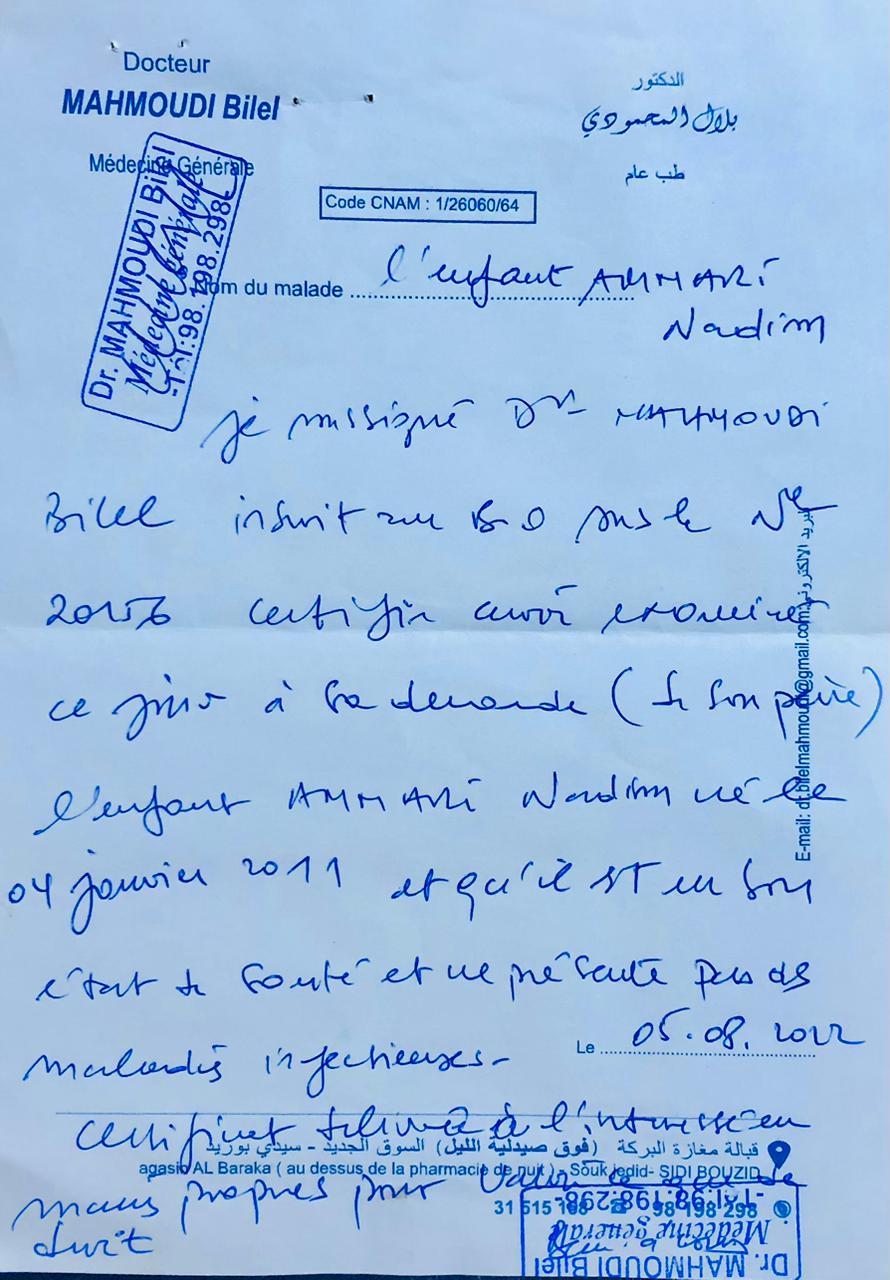 Docteur
MAHMOUDI Bilel
Médecine Générale
الدكتور
بلال المحمودي
طب عام
Code CNAM : 1/26060/64
Dr. MAHMOUDI Bilel
Médecine Générale
Tél:98.198.298
Nom du malade l'enfant AMMARI
Nadim
je soussigné Dr MAHMOUDI
Bilel inscrit au sous le N°
certifie avoir examiner
ce jour à sa demande (de son père)
l'enfant AMMARI Nadim né le
04 janvier 2011 et qu'il est en bon
état de santé et ne présente pas des
maladies infectieuses-
Le 05.08.2022
certificat délivré à l'intéressé en
mains propres pour valoir ce que de
droit
البريد الالكتروني E-mail: dr.bilelmahmoudi@gmail.com
قبالة مغازة البركة (فوق صيدلية الليل) السوق الجديد - سيدي بوزيد
agasin AL Baraka ( au dessus de la pharmacie de nuit ) - Souk jedid- SIDI BOUZID
31 515 198 98 198 298
Dr. MAHMOUDI Bilel
Médecine générale
Tél:98.198.298